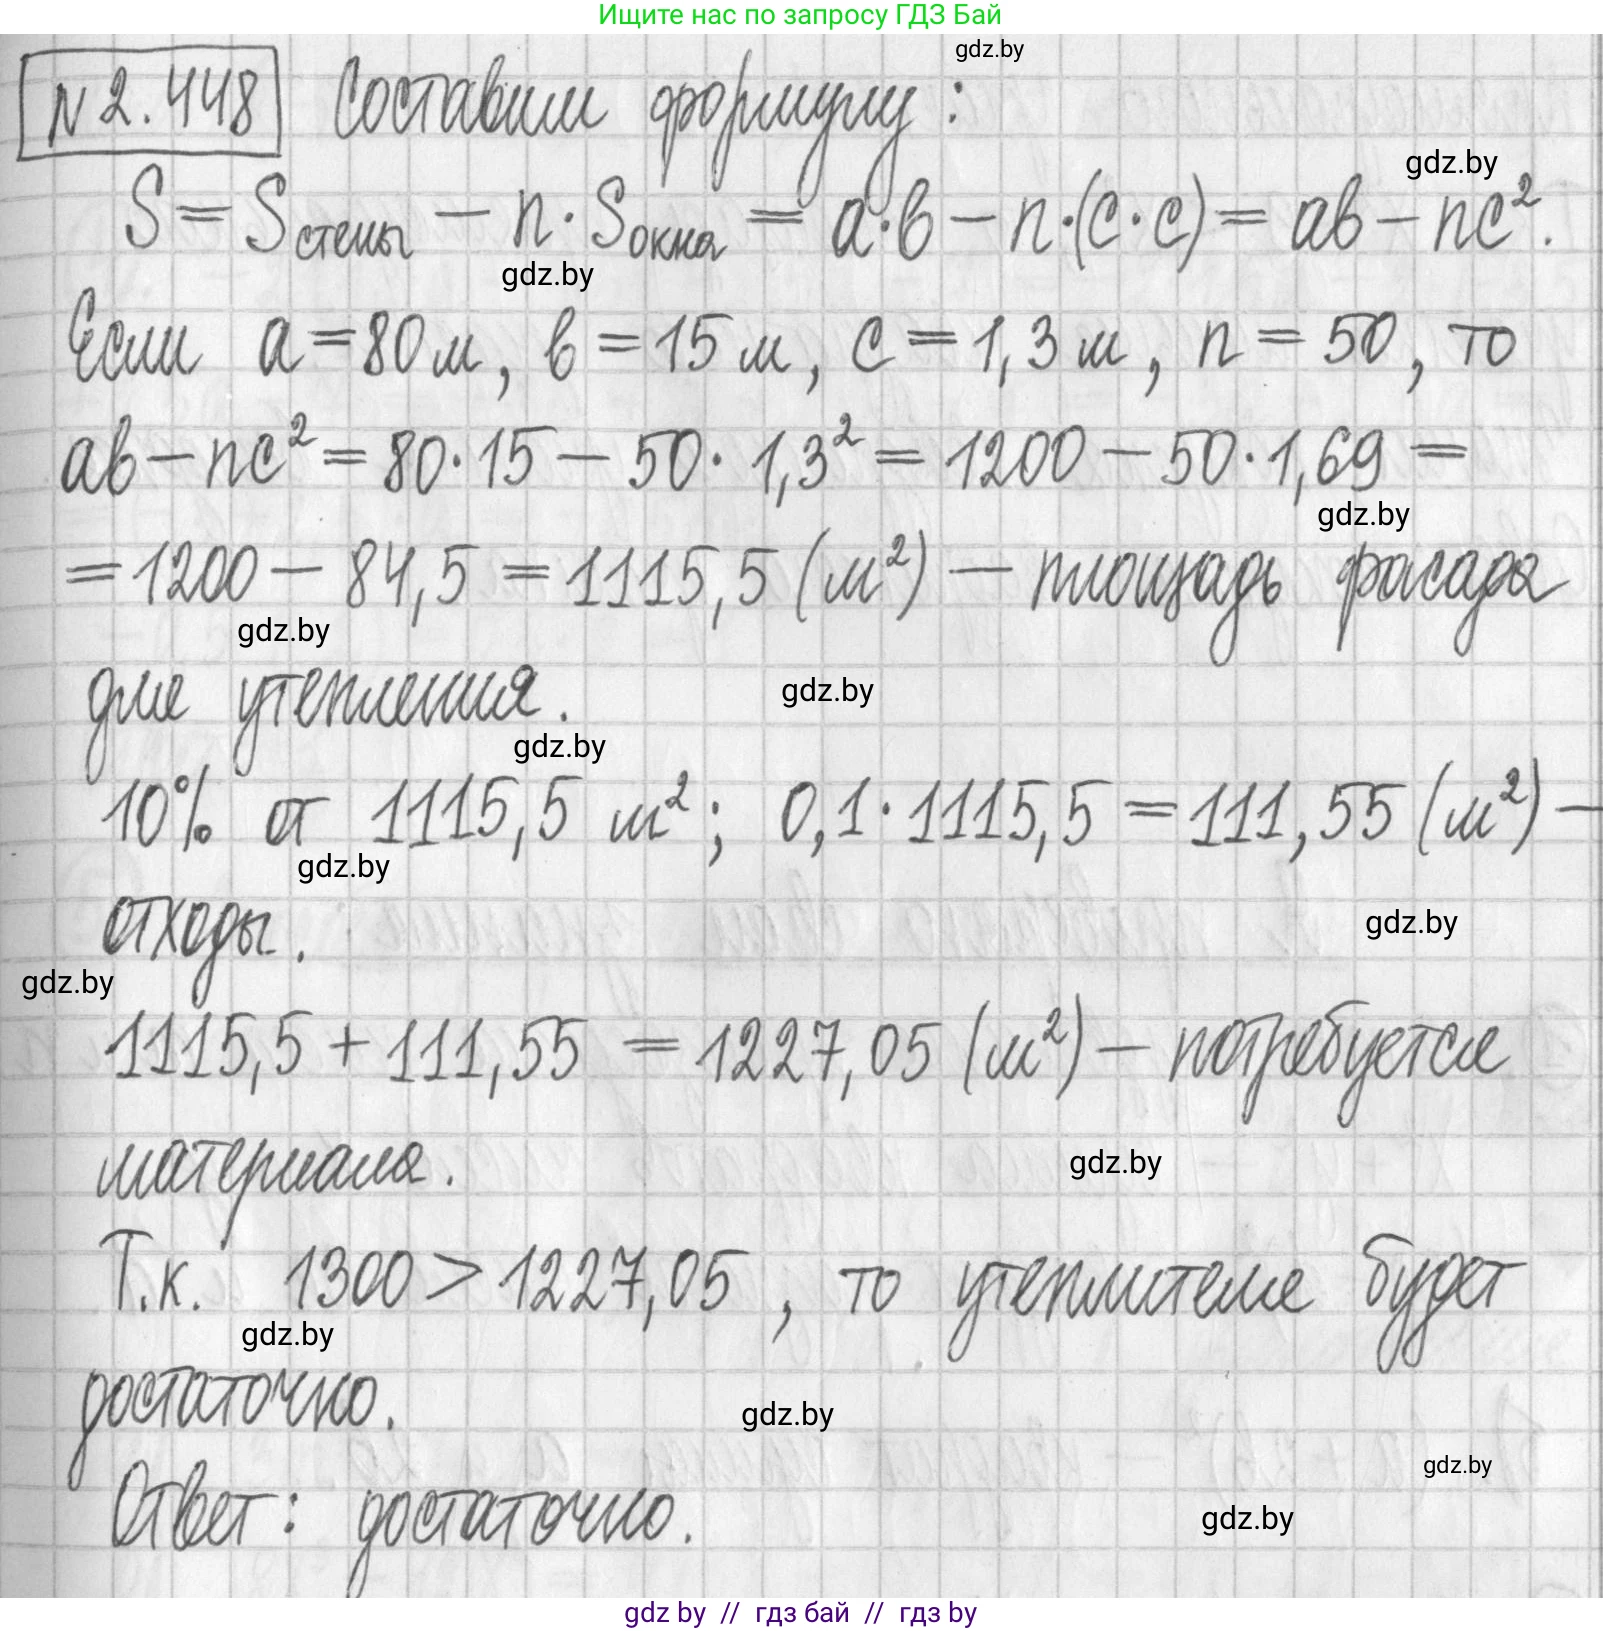 Ищите нас по запросу ГДЗ Бай
gdz.by
N 2.448 Составим формулу:
gdz.by
S = Sстены – n·Sокна = a·b – n·(c·c) = ab – nc².
gdz.by
Если a = 80 м, b = 15 м, c = 1,3 м, n = 50, то
ab – nc² = 80·15 – 50·1,3² = 1200 – 50·1,69 =
gdz.by
= 1200 – 84,5 = 1115,5 (м²) – площадь фасада
gdz.by
для утепления.
gdz.by
gdz.by
10% от 1115,5 м²; 0,1·1115,5 = 111,55 (м²) –
gdz.by
отходы.
gdz.by
gdz.by
1115,5 + 111,55 = 1227,05 (м²) – потребуется
материала.
gdz.by
Т.к. 1300 > 1227,05, то утеплителя будет
gdz.by
достаточно.
gdz.by
gdz.by
Ответ: достаточно.
gdz.by
gdz by // гдз бай // гдз by